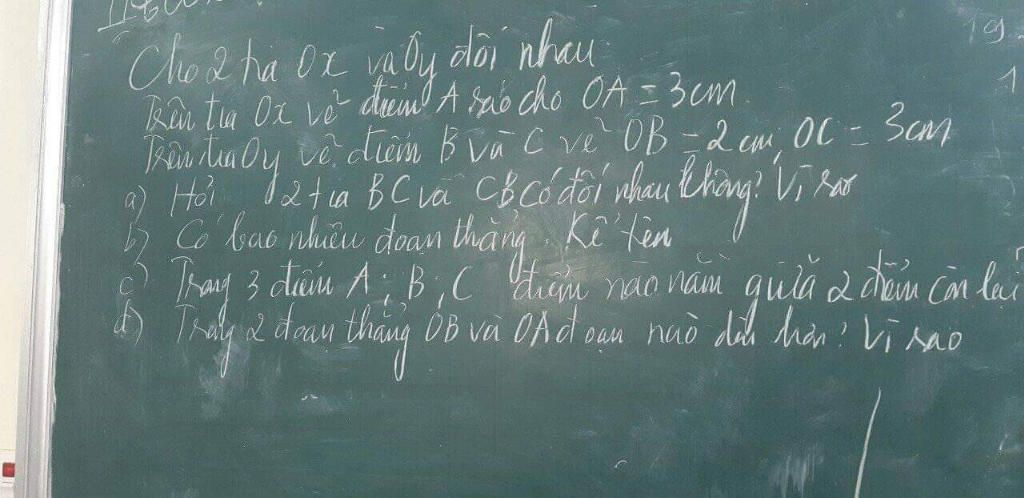 Cho 2 tia Ox và Oy đối nhau
Trên tia Ox vẽ điểm A sao cho OA = 3cm
Trên tia Oy vẽ điểm B và C vẽ OB = 2 cm; OC = 3cm
a) Hỏi 2 tia BC và CB có đối nhau không? Vì sao
b) Có bao nhiêu đoạn thẳng. Kể tên
c) Trong 3 điểm A; B; C điểm nào nằm giữa 2 điểm còn lại
d) Trong 2 đoạn thẳng OB và OA đoạn nào dài hơn? Vì sao
19
1